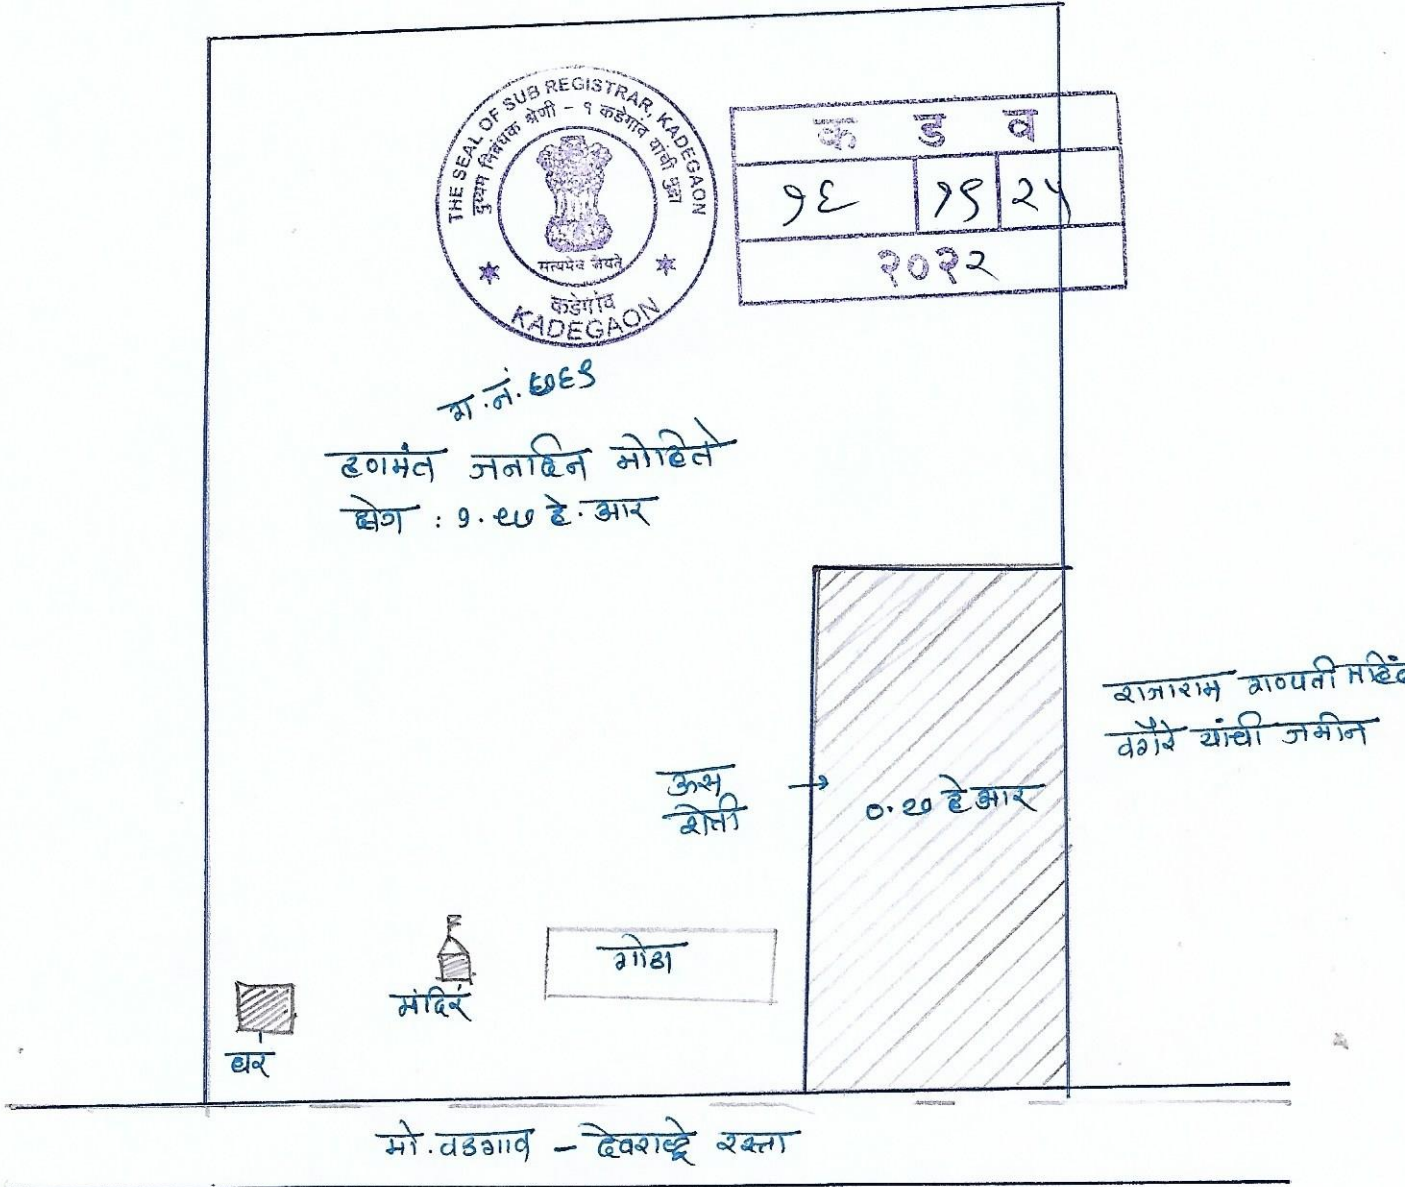 THE SEAL OF SUB REGISTRAR, KADEGAON
दुय्यम निबंधक श्रेणी - १ कडेगांव यांची मुद्रा
सत्यमेव जयते
कडेगांव
KADEGAON
क ड व
१६ १९ २५
२०२२
ग.नं.
हणमंत जनार्दन मोहिते
क्षेत्र : १.९७ हे.आर
राजाराम गणपती
वगैरे यांची जमीन
ऊस
शेती
०.२० हे आर
गोठा
मंदिर
घर
मो.वडगाव - देवराष्ट्रे रस्ता